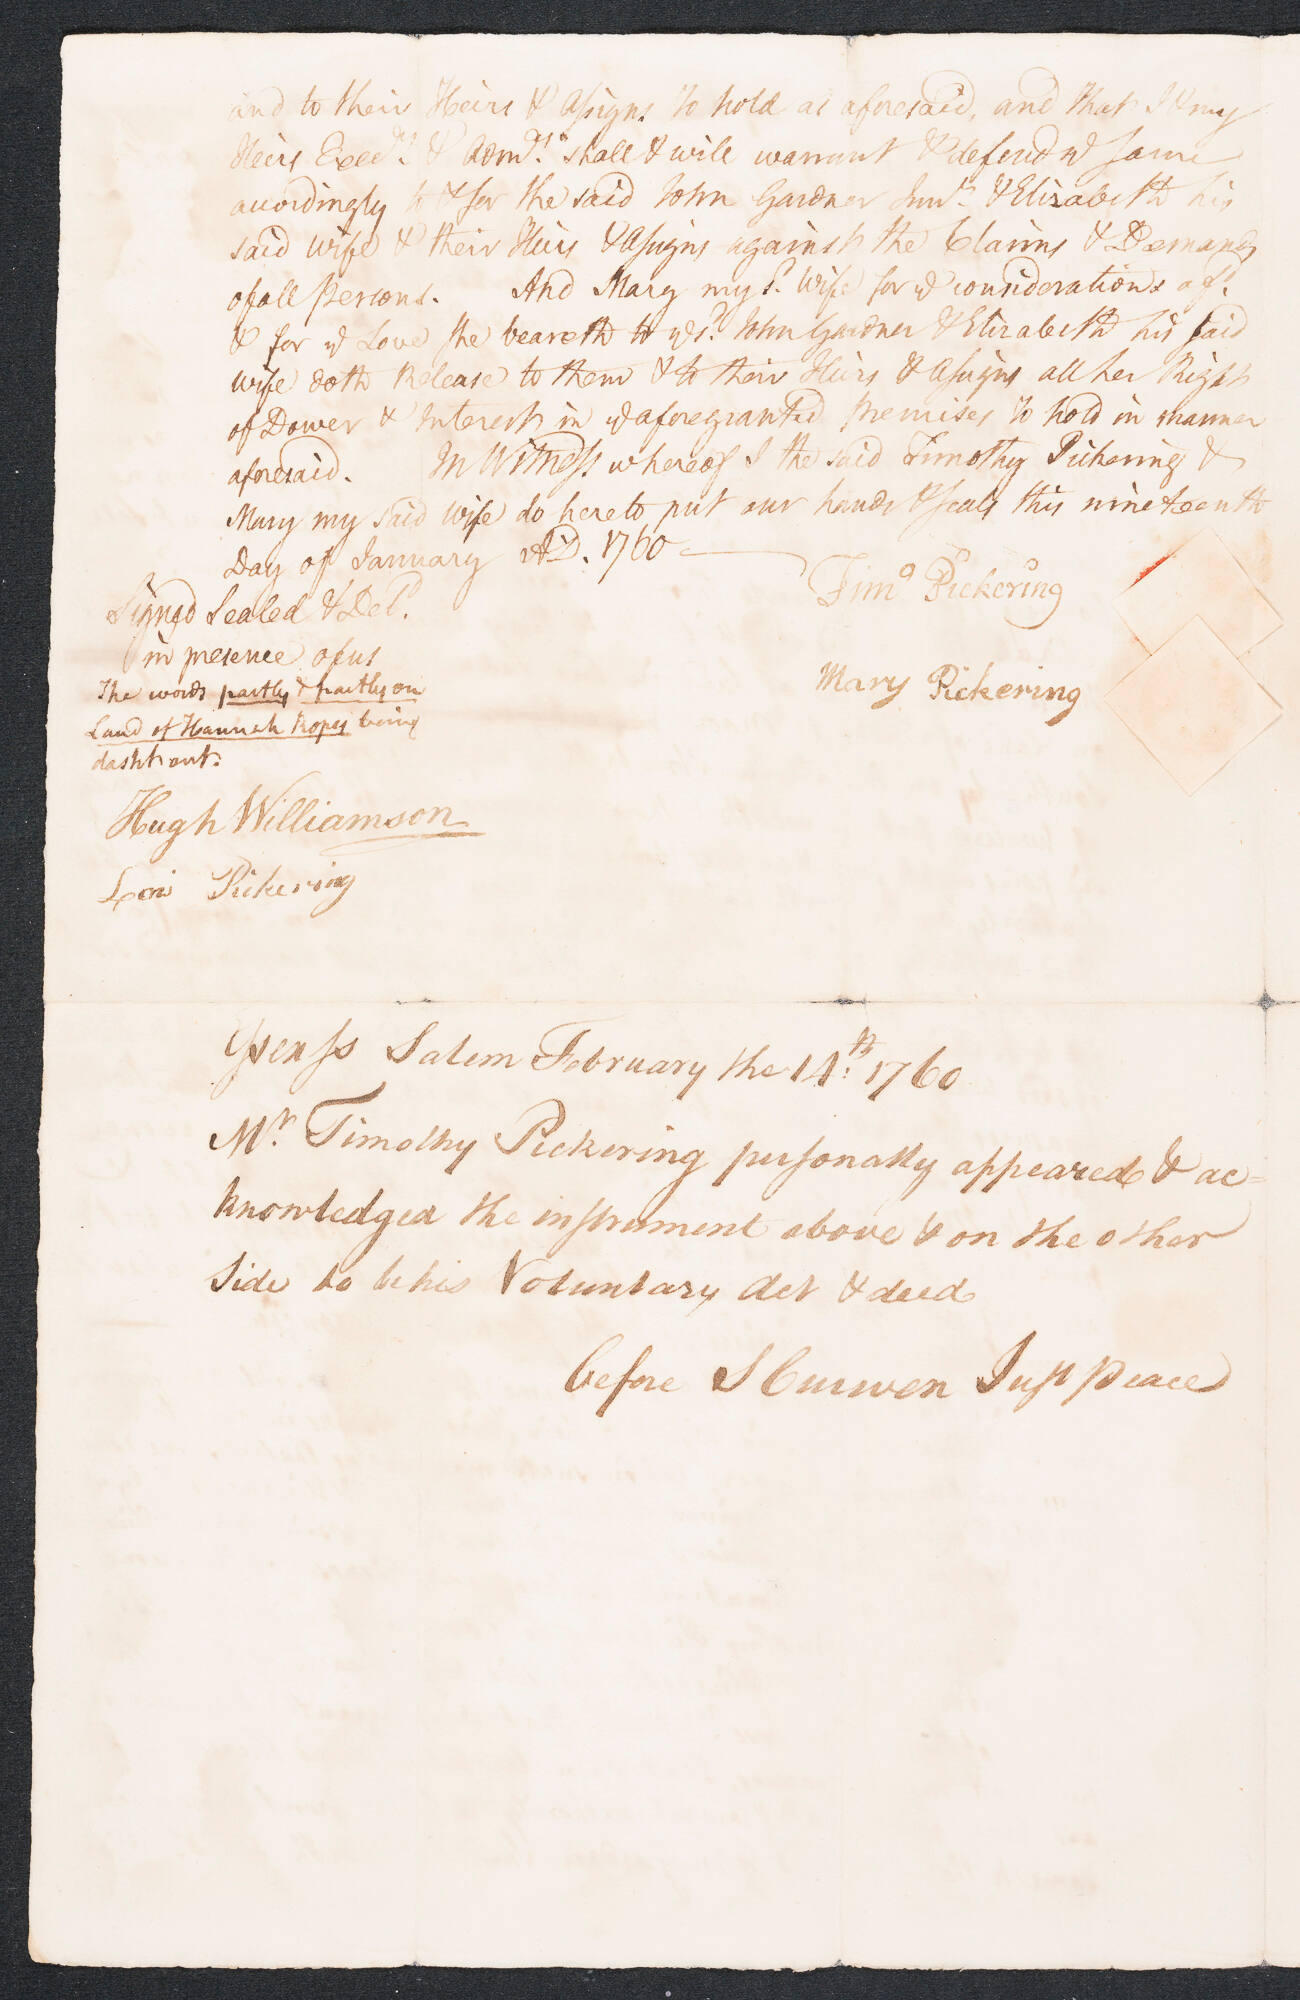 and to their Heirs & Assigns to hold as aforesaid, and that I & my
Heirs Execrs. & Admrs. shall & will warrant & defend ye same
accordingly to & for the said John Gardner Junr. & Elizabeth his
said wife & their Heirs & Assigns against the Claims & Demands
of all Persons. And Mary my sd. Wife for ye considerations afsd.
& for ye Love she beareth to ye sd. John Gardner & Elizabeth his said
wife doth Release to them & to their Heirs & Assigns all her Right
of Dower & Interest in ye aforegranted premises to hold in manner
aforesaid. In Witness whereof I the said Timothy Pickering &
Mary my said wife do hereto put our hands & seals this nineteenth
Day of January AD. 1760
Timo Pickering
Signed Sealed & Deld.
in presence of us
Mary Pickering
The words partly & partly on
Land of Hannah Ropes being
dasht out.
Hugh Williamson
Lois Pickering
Essex ss Salem February the 14th. 1760
Mr. Timothy Pickering personally appeared & ac=
knowledged the instrument above & on the other
side to be his Voluntary act & deed
before S Curwen Just peace